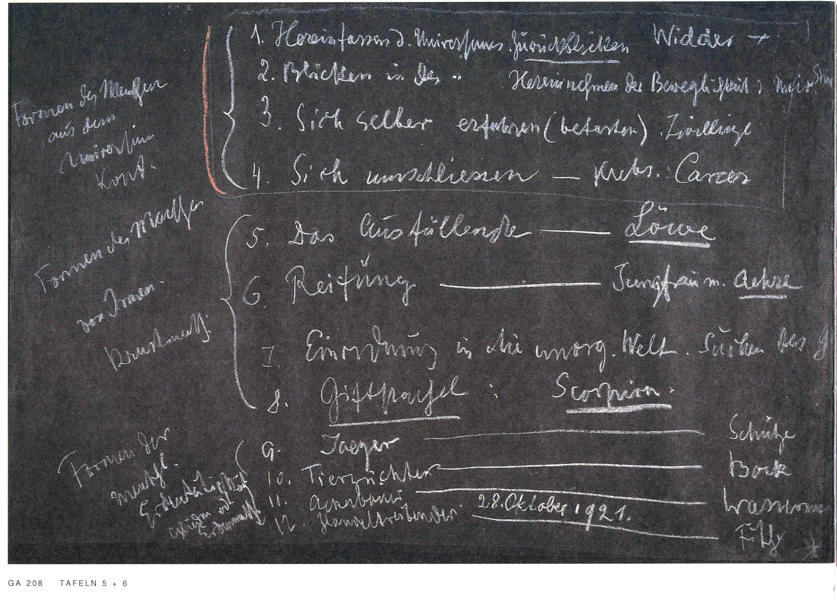 1. Hereinfassen d. Universums. Zurückblicken Widder
2. Blicken in des " Hereinnehmen der Beweglichkeit :
3. Sich selber erfahren (betasten). Zwillinge
4. Sich umschliessen — Krebs. : Cancer
Formen des Menschen
aus dem
Universum
Kopf.
5. Das Ausfüllende — Löwe
6. Reifung — Jungfrau m. Aehre
7. Einordnung in die unorg. Welt. Suchen des
8. Giftstachel : Scorpion.
Formen des Menschen
von Innen.
Brustmensch.
9. Jaeger — Schütze
10. Tierzüchter — Bock
11. Ackerbauer — Wasserm
12. Handeltreibender — Fische
28. Oktober 1921.
Formen der
menschl.
Erdentätigkeit
GA 208 TAFELN 5 + 6